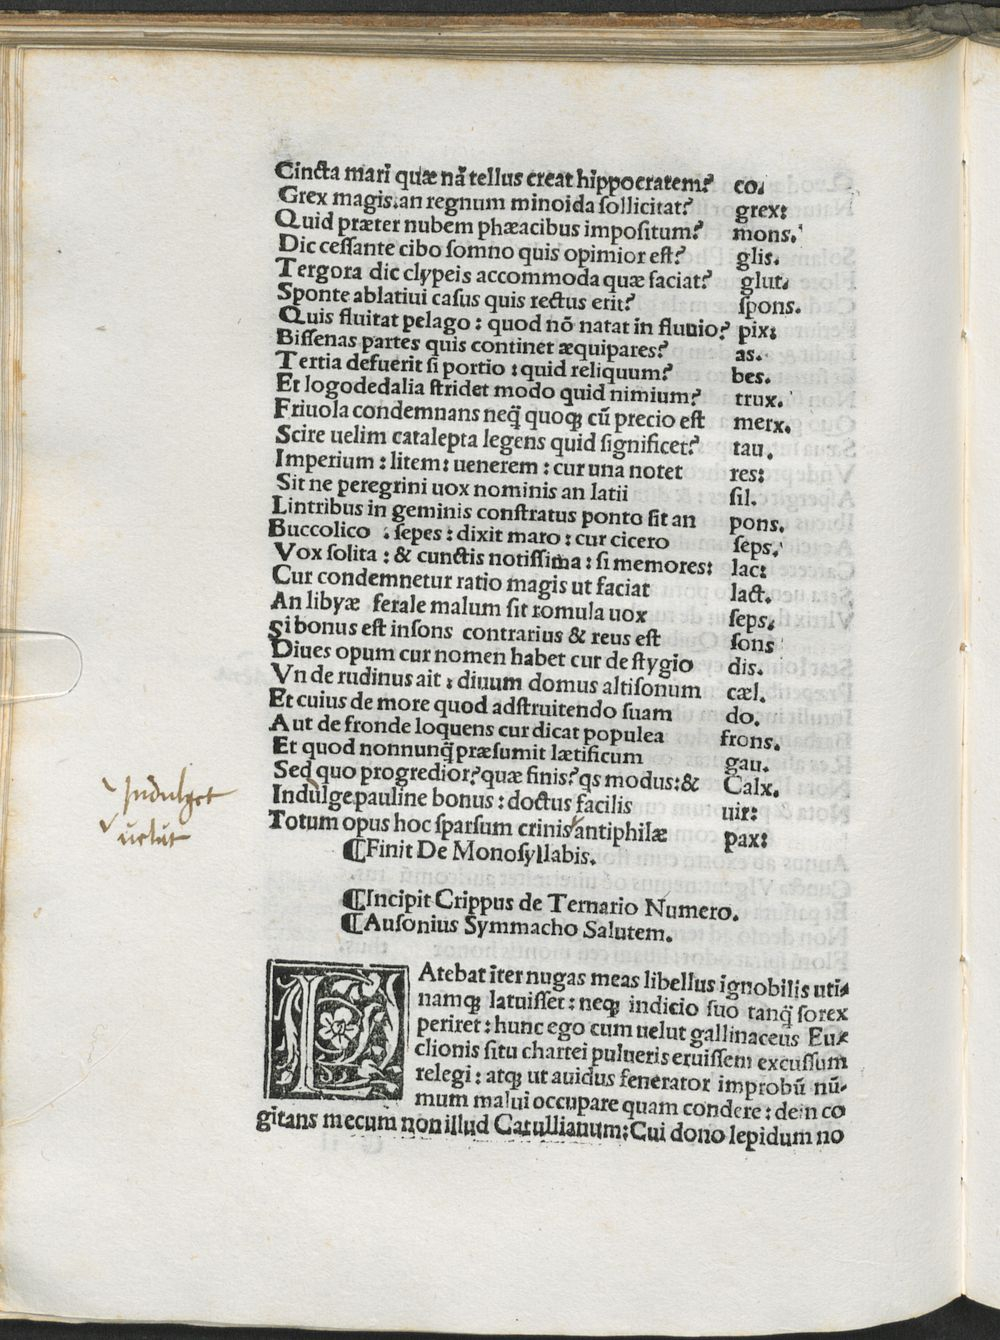 Cincta mari quæ nã tellus creat hippocratem? co.
Grex magis.an regnum minoida sollicitat? grex:
Quid præter nubem phæacibus impositum? mons.
Dic cessante cibo somno quis opimior est? glis.
Tergora dic clypeis accommoda quæ faciat? glut.
Sponte ablatiui casus quis rectus erit? spons.
Quis fluitat pelago : quod nõ natat in fluuio? pix:
Bissenas partes quis continet æquipares? as.
Tertia defuerit si portio : quid reliquum? bes.
Et logodedalia stridet modo quid nimium? trux.
Friuola condemnans neq̃ quoqꝫ cũ precio est merx.
Scire uelim catalepta legens quid significet? tau.
Imperium : litem : uenerem : cur una notet res:
Sit ne peregrini uox nominis an latii sil.
Lintribus in geminis constratus ponto sit an pons.
Buccolico : sepes : dixit maro : cur cicero seps.
Vox solita : & cunctis notissima : si memores: lac:
Cur condemnetur ratio magis ut faciat lact.
An libyæ ferale malum sit romula uox seps.
Si bonus est insons contrarius & reus est sons
Diues opum cur nomen habet cur de stygio dis.
Vn de rudinus ait : diuum domus altisonum cæl.
Et cuius de more quod adstruitendo suam do.
Aut de fronde loquens cur dicat populea frons.
Et quod nonnunq̃ præsumit lætificum gau.
Sed quo progredior?quæ finis?q̃s modus:& Calx.
Indulge.pauline bonus : doctus facilis uir:
Totum opus hoc sparsum crinis antiphilæ pax:
¶Finit De Monosyllabis.
Indulget
uelut
¶Incipit Crippus de Ternario Numero.
¶Ausonius Symmacho Salutem.
LAtebat iter nugas meas libellus ignobilis uti-
namqꝫ latuisset : neqꝫ indicio suo tanq̃ sorex
periret : hunc ego cum uelut gallinaceus Eu-
clionis situ chartei pulueris eruissem excussum
relegi : atqꝫ ut auidus fenerator improbũ nũ-
mum malui occupare quam condere : dein co
gitans mecum non illud Catullianum:Cui dono lepidum no